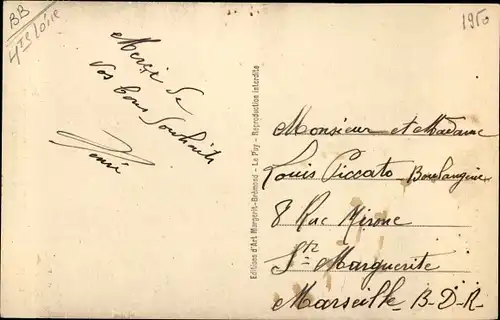 BB
Hte Loire
1950
Merci de
vos bons souhaits
Henri
Editions d'Art Margerit-Brémond - Le Puy - Reproduction interdite
Monsieur et Madame
Louis Piccato Boulangerie
8 Rue Mirone
Ste Marguerite
Marseille B-D-R-